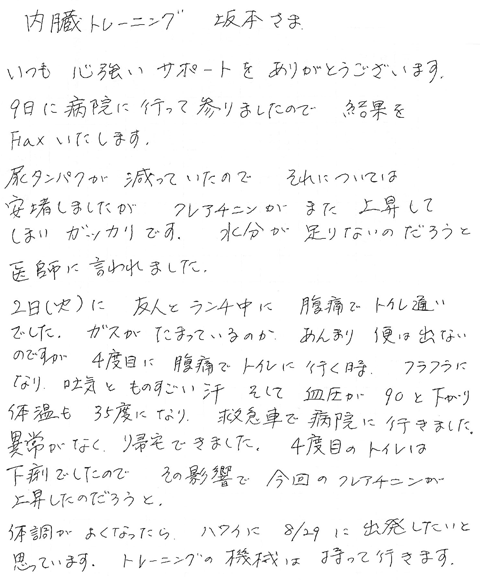 内臓トレーニング 坂本さま
いつも 心強い サポートを ありがとうございます.
9日に 病院に 行って 参りましたので 結果を
Fax いたします.
尿タンパクが 減っていたので それについては
安堵しましたが クレアチニンが また 上昇して
しまい ガッカリです. 水分が 足りないのだろうと
医師に 言われました.
2日(火)に 友人と ランチ中に 腹痛で トイレ通い
でした. ガスが たまっているのか. あんまり 便は出ない
のですが 4度目に 腹痛で トイレに 行く時. フラフラに
なり. 吐気と ものすごい 汗 そして 血圧が 90と 下がり
体温も 35度になり. 救急車で 病院に 行きました.
異常がなく. 帰宅できました. 4度目の トイレは
下痢でしたので その影響で 今回の クレアチニンが
上昇したのだろうと.
体調が よくなったら. ハワイに 8/29 に 出発したいと
思っています. トレーニングの 機械は 持って 行きます.